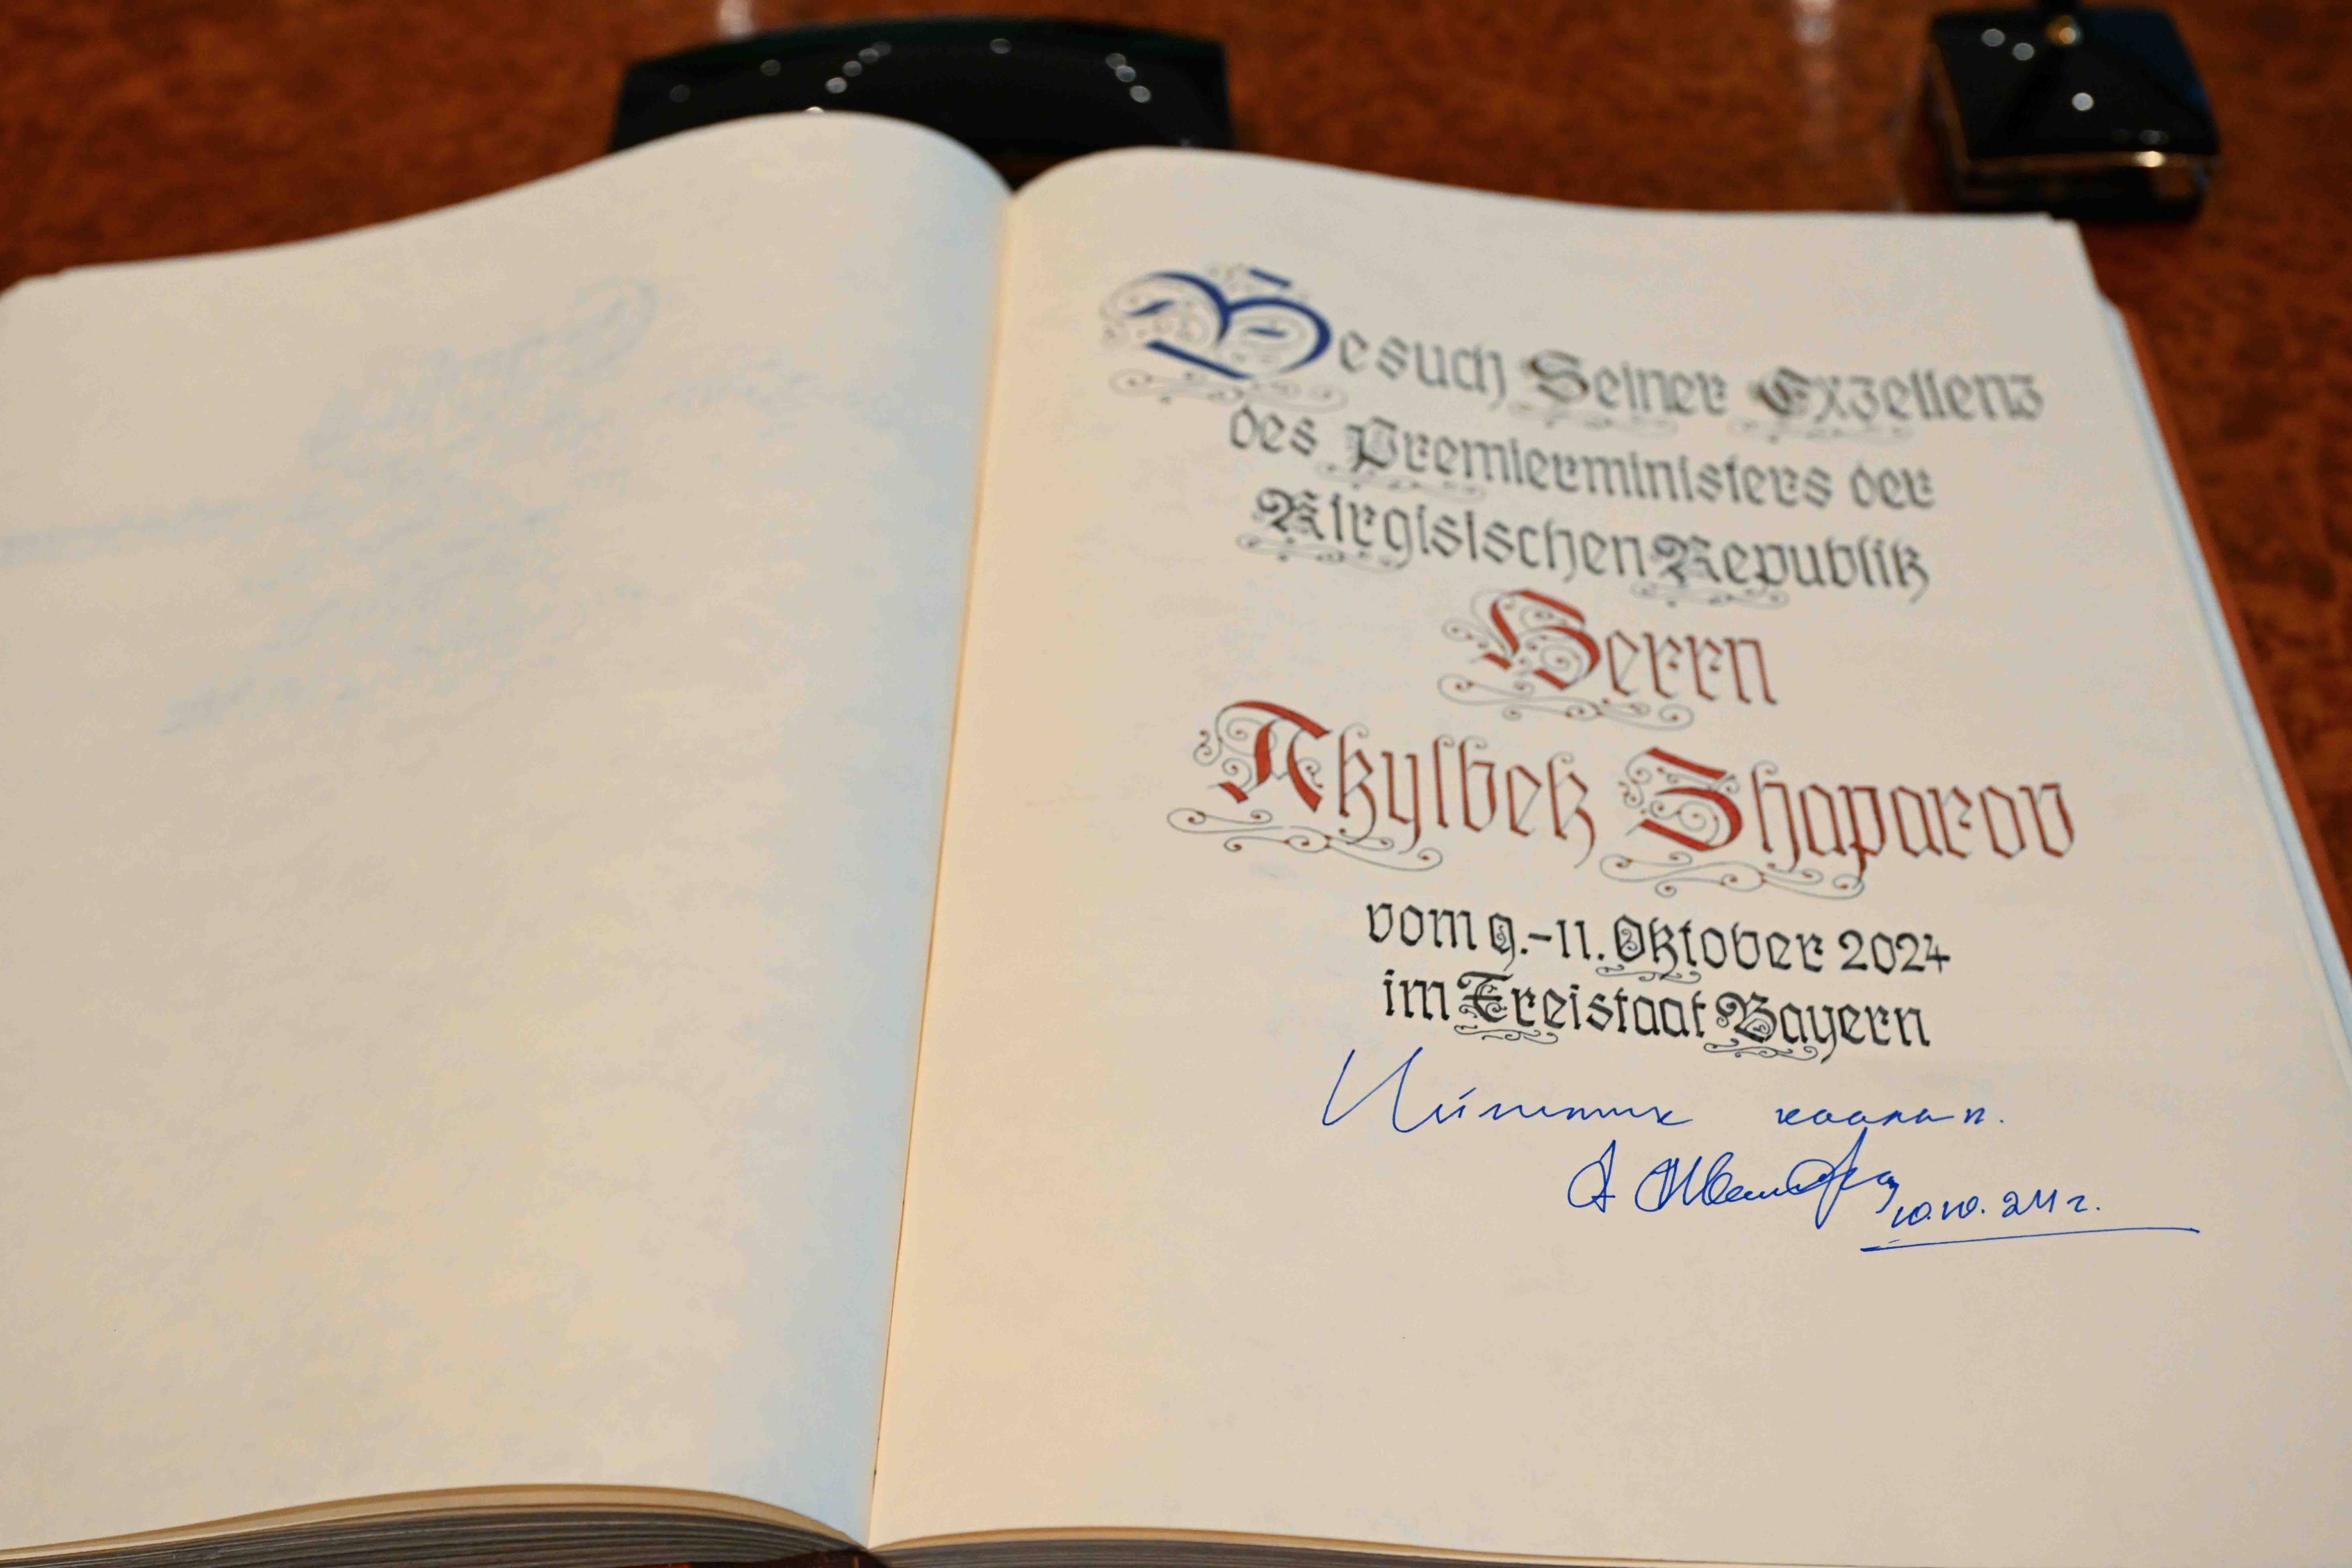 Besuch Seiner Exzellenz
des Premierministers der
Kirgisischen Republik
Herrn
Akylbek Shaparov
vom 9.-11. Oktober 2024
im Freistaat Bayern
10.10.24 г.